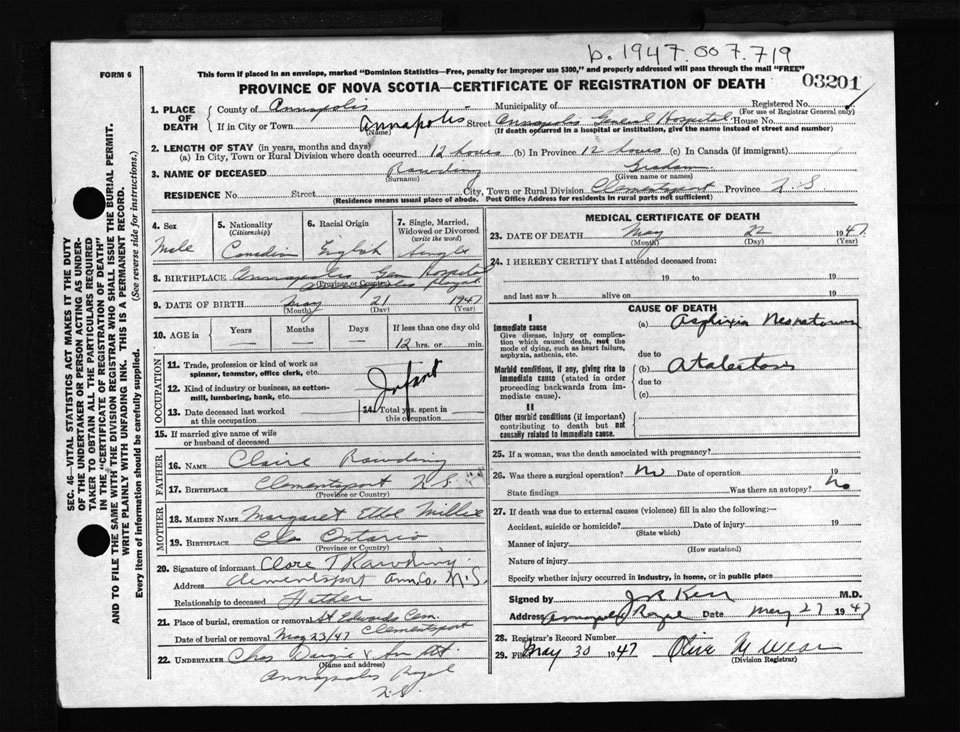 b. 1947.007.719
FORM 6
This form if placed in an envelope, marked "Dominion Statistics—Free, penalty for improper use $300," and properly addressed will pass through the mail "FREE"
PROVINCE OF NOVA SCOTIA—CERTIFICATE OF REGISTRATION OF DEATH 03201
SEC. 46—VITAL STATISTICS ACT MAKES IT THE DUTY
OF THE UNDERTAKER OR PERSON ACTING AS UNDER-
TAKER TO OBTAIN ALL THE PARTICULARS REQUIRED
IN THE "CERTIFICATE OF REGISTRATION OF DEATH"
AND TO FILE THE SAME WITH THE DIVISION REGISTRAR WHO SHALL ISSUE THE BURIAL PERMIT.
WRITE PLAINLY WITH UNFADING INK. THIS IS A PERMANENT RECORD.
Every item of information should be carefully supplied. (See reverse side for instructions.)
1. PLACE OF DEATH County of Annapolis Municipality of Registered No.
(For use of Registrar General only)
If in City or Town Annapolis Street Annapolis General Hospital House No.
(Name) (If death occurred in a hospital or institution, give the name instead of street and number)
2. LENGTH OF STAY (in years, months and days)
(a) In City, Town or Rural Division where death occurred 12 hours (b) In Province 12 hours (c) In Canada (if immigrant)
3. NAME OF DECEASED Rawding Graham
(Surname) (Given name or names)
RESIDENCE No. Street City, Town or Rural Division Clementsport Province N.S
(Residence means usual place of abode. Post Office Address for residents in rural parts not sufficient)
4. Sex Male
5. Nationality (Citizenship) Canadian
6. Racial Origin English
7. Single, Married, Widowed or Divorced (write the word) Single
8. BIRTHPLACE Annapolis Gen Hospital
(Province or Country) Annapolis Royal
9. DATE OF BIRTH May 21 1947
(Month) (Day) (Year)
10. AGE in Years Months Days If less than one day old
12 hrs. or min.
OCCUPATION
11. Trade, profession or kind of work as
spinner, teamster, office clerk, etc.
Infant
12. Kind of industry or business, as cotton-
mill, lumbering, bank, etc.
13. Date deceased last worked
at this occupation
14. Total yrs. spent in
this occupation
15. If married give name of wife
or husband of deceased
FATHER
16. NAME Claire Rawding
17. BIRTHPLACE Clementsport N.S.
(Province or Country)
MOTHER
18. MAIDEN NAME Margaret Ethel Millie
19. BIRTHPLACE Ontario
(Province or Country)
20. Signature of informant Clare T Rawding
Address Clementsport Ann. Co. N.S.
Relationship to deceased Father
21. Place of burial, cremation or removal St Edwards Cem.
Date of burial or removal May 23/47 Clementsport
22. UNDERTAKER Chas Dargie
(Name and address)
Annapolis Royal
N.S.
MEDICAL CERTIFICATE OF DEATH
23. DATE OF DEATH May 22 1947
(Month) (Day) (Year)
24. I HEREBY CERTIFY that I attended deceased from:
19 to 19
and last saw h alive on 19
CAUSE OF DEATH
I
Immediate cause
Give disease, injury or complica-
tion which caused death, not the
mode of dying, such as heart failure,
asphyxia, asthenia, etc.
(a) Asphixia Neonatorum
due to
Morbid conditions, if any, giving rise to
immediate cause (stated in order
proceeding backwards from im-
mediate cause).
(b)
due to
(c)
II
Other morbid conditions (if important)
contributing to death but not
causally related to immediate cause.
25. If a woman, was the death associated with pregnancy?
26. Was there a surgical operation? No Date of operation 19
State findings Was there an autopsy? No
27. If death was due to external causes (violence) fill in also the following:—
Accident, suicide or homicide? Date of injury 19
(State which)
Manner of injury
(How sustained)
Nature of injury
Specify whether injury occurred in industry, in home, or in public place
Signed by J R Kerr M.D.
Address Annapolis Royal Date May 27 1947
28. Registrar's Record Number
29. Filed May 30 1947 Olive M
(Division Registrar)